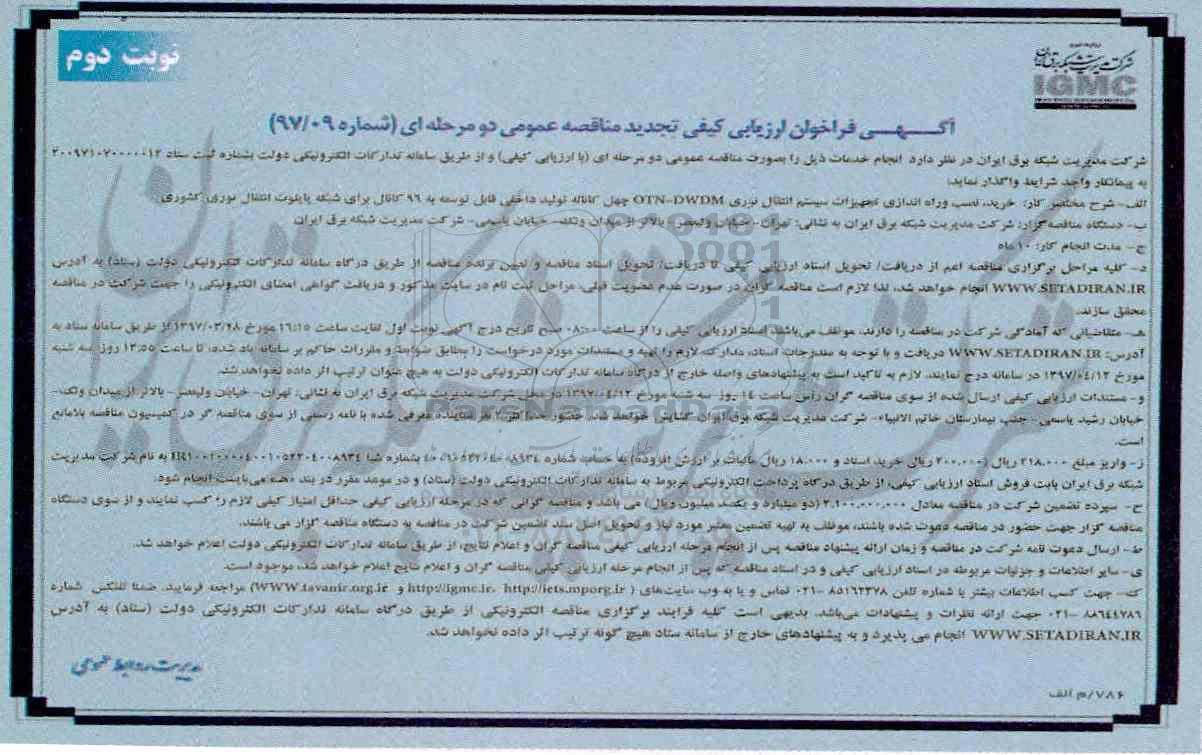 نوبت دوم
شرکت مدیریت شبکه برق ایران
IGMC
آگهی فراخوان ارزیابی کیفی تجدید مناقصه عمومی دو مرحله ای (شماره ۹۷/۰۹)
شرکت مدیریت شبکه برق ایران در نظر دارد انجام خدمات ذیل را بصورت مناقصه عمومی دو مرحله ای (با ارزیابی کیفی) و از طریق سامانه تدارکات الکترونیکی دولت بشماره ثبت ستاد
به پیمانکار واجد شرایط واگذار نماید:
الف- شرح مختصر کار: خرید، نصب وراه اندازی تجهیزات سیستم انتقال نوری OTN-DWDM چهل کاناله تولید داخلی قابل توسعه به ۹۶ کانال برای شبکه پایلوت انتقال نوری کشوری
ب- دستگاه مناقصه گزار: شرکت مدیریت شبکه برق ایران به نشانی: تهران- خیابان ولیعصر- بالاتر از میدان ونک- خیابان یاسمی- شرکت مدیریت شبکه برق ایران
ج- مدت انجام کار: ۱۰ ماه
د- کلیه مراحل برگزاری مناقصه اعم از دریافت/ تحویل اسناد ارزیابی کیفی تا دریافت/ تحویل اسناد مناقصه و تعیین برنده مناقصه از طریق درگاه سامانه تدارکات الکترونیکی دولت (ستاد) به آدرس
WWW.SETADIRAN.IR انجام خواهد شد، لذا لازم است مناقصه گران در صورت عدم عضویت قبلی، مراحل ثبت نام در سایت مذکور و دریافت گواهی امضای الکترونیکی را جهت شرکت در مناقصه
محقق سازند.
هـ- متقاضیانی که آمادگی شرکت در مناقصه را دارند، موظف می‌باشند اسناد ارزیابی کیفی را از ساعت ۰۸:۰۰ صبح تاریخ درج آگهی نوبت اول لغایت ساعت ۱۶:۱۵ مورخ ۱۳۹۷/۰۳/۲۸ از طریق سامانه ستاد به
آدرس: WWW.SETADIRAN.IR دریافت و با توجه به مندرجات اسناد، مدارک لازم را تهیه و مستندات مورد درخواست را مطابق ضوابط و مقررات حاکم بر سامانه یاد شده، تا ساعت ۱۳:۵۵ روز سه شنبه
مورخ ۱۳۹۷/۰۴/۱۲ در سامانه درج نمایند. لازم به تاکید است به پیشنهادهای واصله خارج از درگاه سامانه تدارکات الکترونیکی دولت به هیچ عنوان ترتیب اثر داده نخواهد شد.
و- مستندات ارزیابی کیفی ارسال شده از سوی مناقصه گران رأس ساعت ۱۴ روز سه شنبه مورخ ۱۳۹۷/۰۴/۱۲ در محل شرکت مدیریت شبکه برق ایران به نشانی: تهران- خیابان ولیعصر- بالاتر از میدان ونک-
خیابان رشید یاسمی- جنب بیمارستان خاتم الانبیاء- شرکت مدیریت شبکه برق ایران گشایش خواهد شد. حضور حداکثر نماینده معرفی شده با نامه رسمی از سوی مناقصه گر در کمیسیون مناقصه بلامانع
است.
ز- واریز مبلغ ۲۱۸.۰۰۰ ریال (۲۰۰.۰۰۰ ریال خرید اسناد و ۱۸.۰۰۰ ریال مالیات بر ارزش افزوده) به حساب شماره بشماره شبا به نام شرکت مدیریت
شبکه برق ایران بابت فروش اسناد ارزیابی کیفی، از طریق درگاه پرداخت الکترونیکی مربوط به سامانه تدارکات الکترونیکی دولت (ستاد) و در موعد مقرر در بند «هـ» می‌بایست انجام شود.
ح- سپرده تضمین شرکت در مناقصه معادل ۲.۱۰۰.۰۰۰.۰۰۰ (دو میلیارد و یکصد میلیون ریال) می باشد و مناقصه گرانی که در مرحله ارزیابی کیفی حداقل امتیاز کیفی لازم را کسب نمایند و از سوی دستگاه
مناقصه گزار جهت حضور در مناقصه دعوت شده باشند، موظف به تهیه تضمین معتبر مورد نیاز و تحویل اصل سند تضمین شرکت در مناقصه به دستگاه مناقصه گزار می باشند.
ط- ارسال دعوت نامه شرکت در مناقصه و زمان ارائه پیشنهاد مناقصه پس از انجام مرحله ارزیابی کیفی مناقصه گران و اعلام نتایج، از طریق سامانه تدارکات الکترونیکی دولت اعلام خواهد شد.
ی- سایر اطلاعات و جزئیات مربوطه در اسناد ارزیابی کیفی و در اسناد مناقصه که پس از انجام مرحله ارزیابی کیفی مناقصه گران و اعلام نتایج اعلام خواهد شد، موجود است.
ک- جهت کسب اطلاعات بیشتر با شماره تلفن ۸۵۱۶۲۳۷۸ -۰۲۱ تماس و یا به وب سایت‌های ( http://iets.mporg.ir ،http://igmc.ir و WWW.tavanir.org.ir) مراجعه فرمایید. ضمنا تلفکس شماره
۸۸۶۴۴۷۸۶ -۰۲۱ جهت ارائه نظرات و پیشنهادات می‌باشد. بدیهی است کلیه فرایند برگزاری مناقصه الکترونیکی از طریق درگاه سامانه تدارکات الکترونیکی دولت (ستاد) به آدرس
WWW.SETADIRAN.IR انجام می پذیرد و به پیشنهادهای خارج از سامانه ستاد هیچ گونه ترتیب اثر داده نخواهد شد.
مدیریت روابط عمومی
۷۸۶/م الف